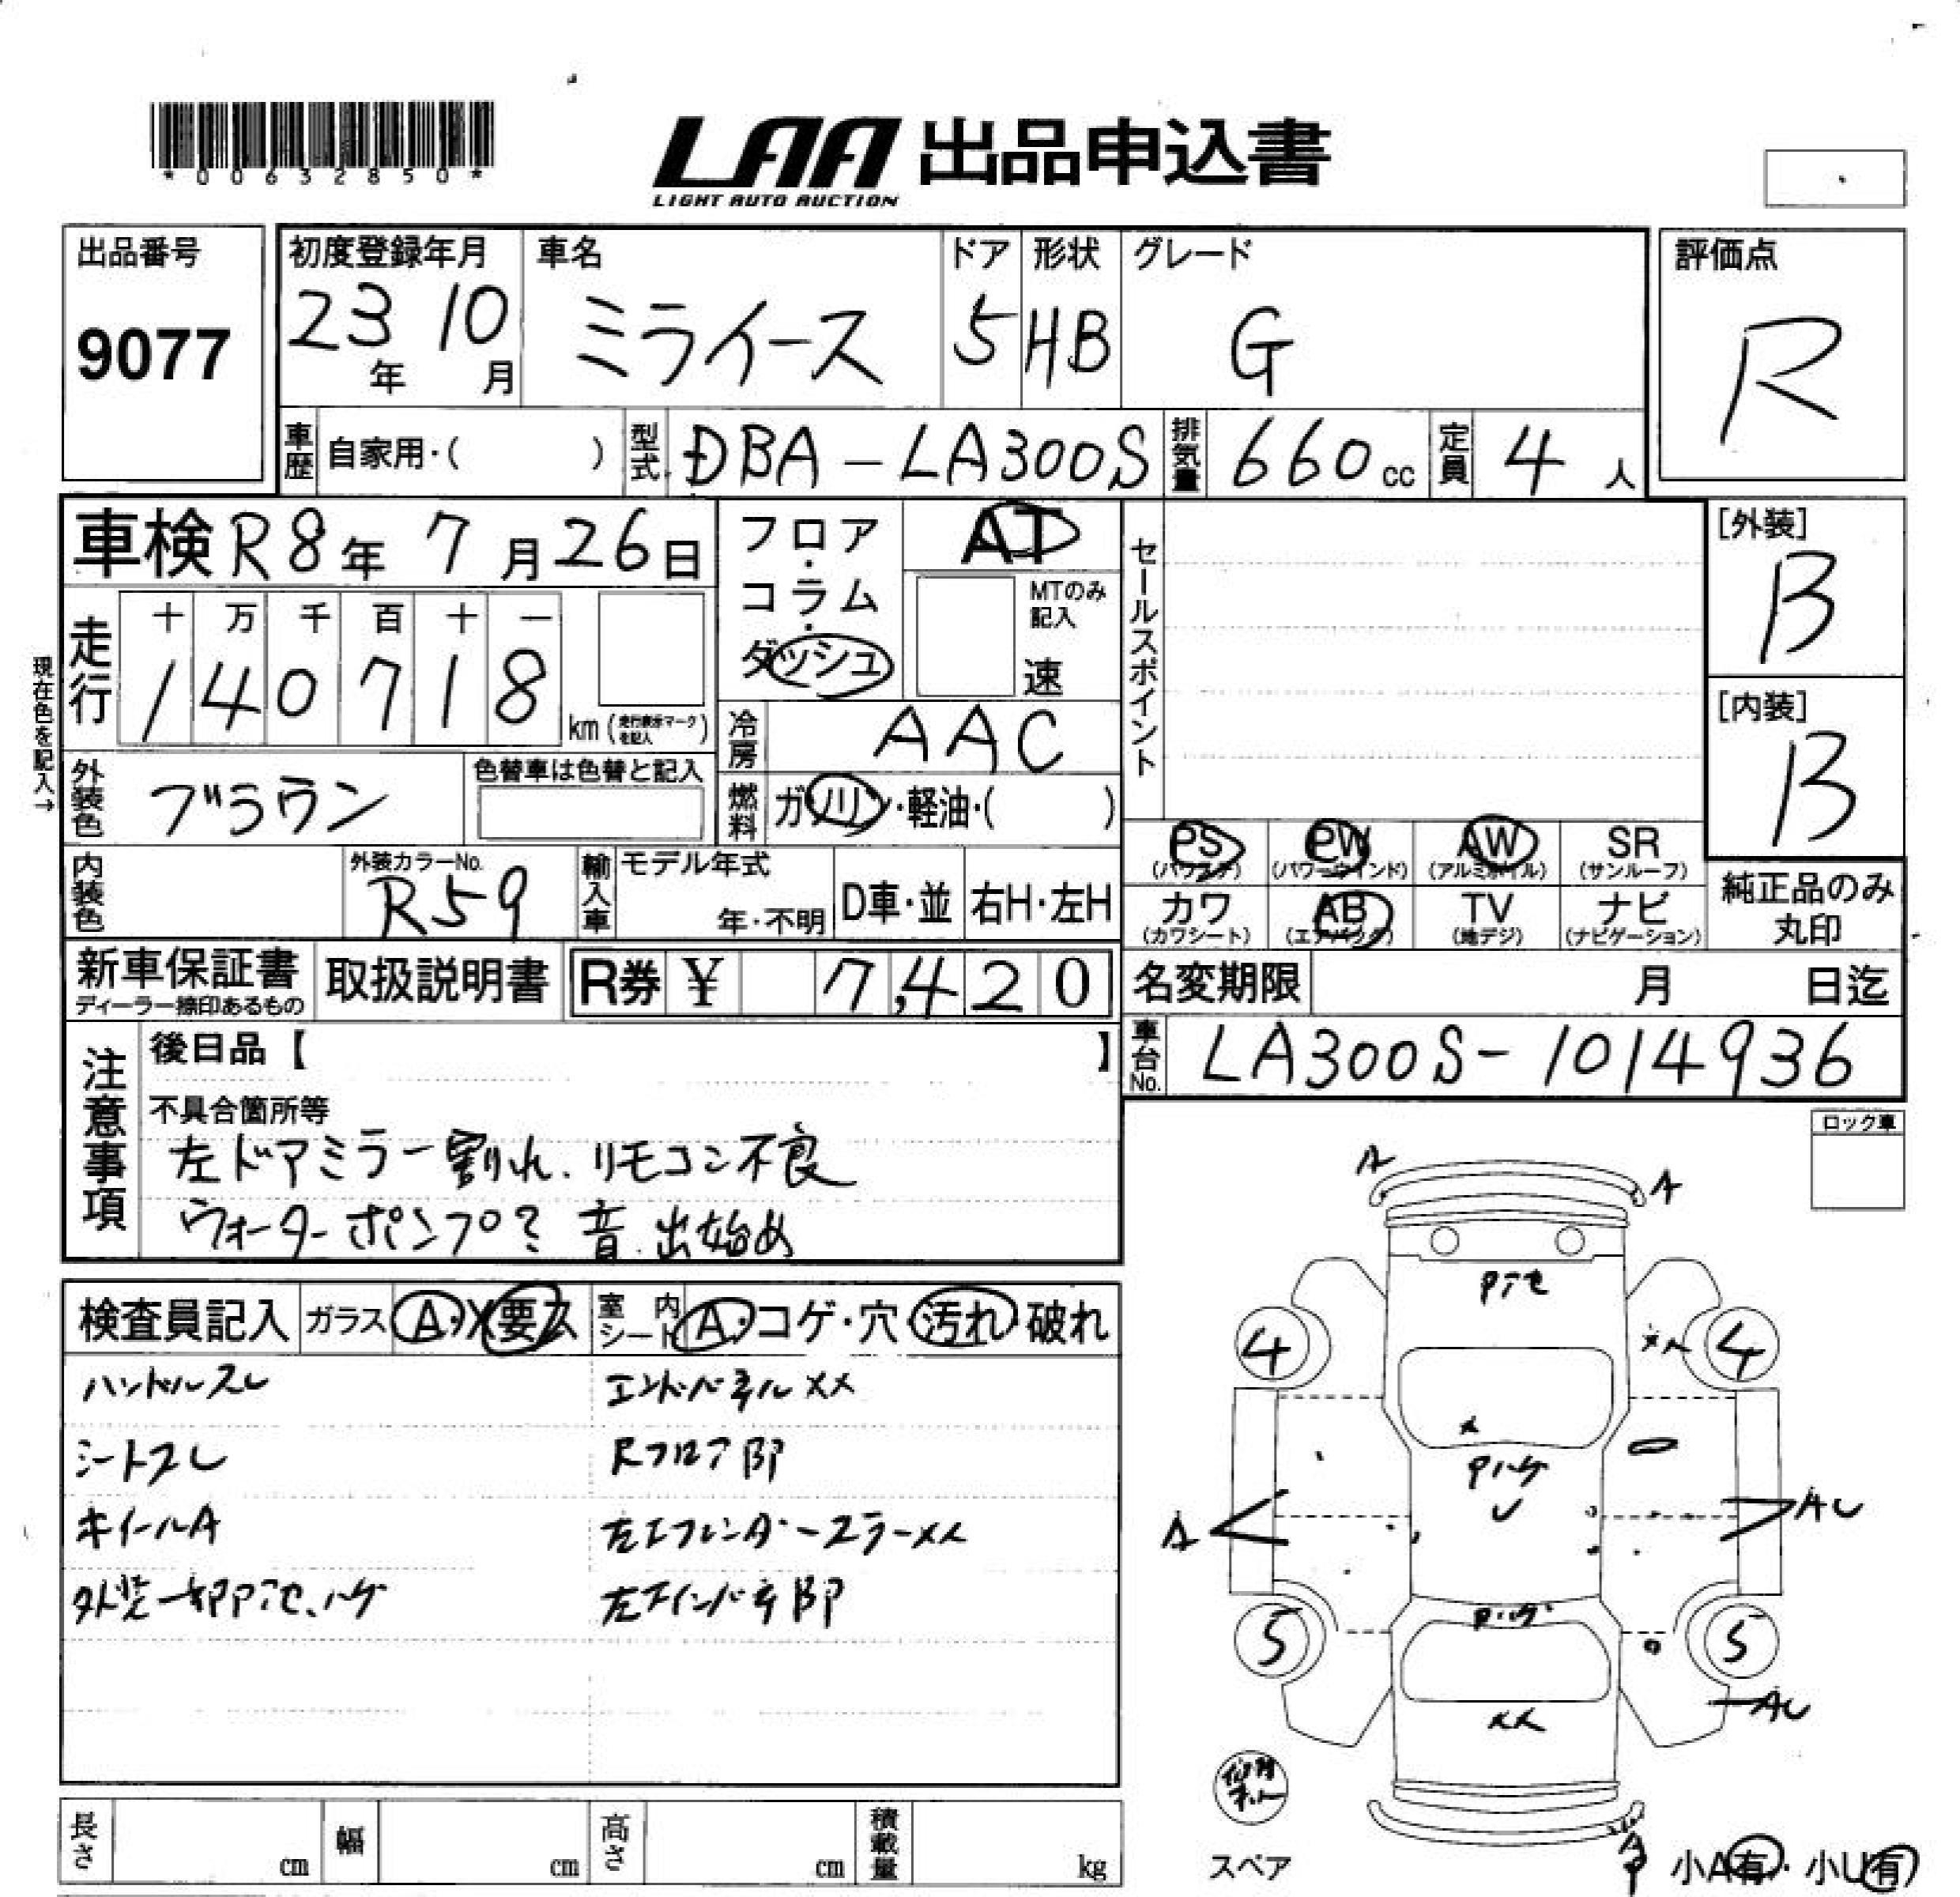 *00632850*
LAA 出品申込書
LIGHT AUTO AUCTION
出品番号
9077
初度登録年月
23年 10月
車名
ミライース
ドア
5
形状
HB
グレード
G
評価点
R
車歴 自家用・( )
型式 DBA-LA300S
排気量 660 cc
定員 4 人
車検 R8年 7月26日
フロア・コラム・ダッシュ
AT
MTのみ記入
速
セールスポイント
[外装]
B
[内装]
B
現在色を記入→
走行 十 万 千 百 十 一
1 4 0 7 1 8 km (走行表示マークを記入)
冷房 AAC
外装色 ブラウン
色替車は色替と記入
燃料 ガソリン・軽油・( )
内装色
外装カラーNo.
R59
輸入車
モデル年式
年・不明
D車・並
右H・左H
PS (パワステ)
PW (パワーウインド)
AW (アルミホイル)
SR (サンルーフ)
カワ (カワシート)
AB (エアバック)
TV (地デジ)
ナビ (ナビゲーション)
純正品のみ丸印
新車保証書
ディーラー捺印あるもの
取扱説明書
R券 ¥ 7,420
名変期限 月 日迄
車台No. LA300S-1014936
注意事項
後日品【 】
不具合箇所等
左ドアミラー割れ、リモコン不良
ウォーターポンプ? 音出始め
ロック車
検査員記入
ガラス A・X要ス
室内シート A・コゲ・穴・汚れ・破れ
ハンドルスレ
エンドパネルXX
シートスレ
Rフロア部
ホイールA
外装一部P アセ、ハゲ
A
A
Pアセ
4
4
Pハゲ
A
AU
5
5
XX
AU
スペア
小A有・小U有
長さ cm
幅 cm
高さ cm
積載量 kg